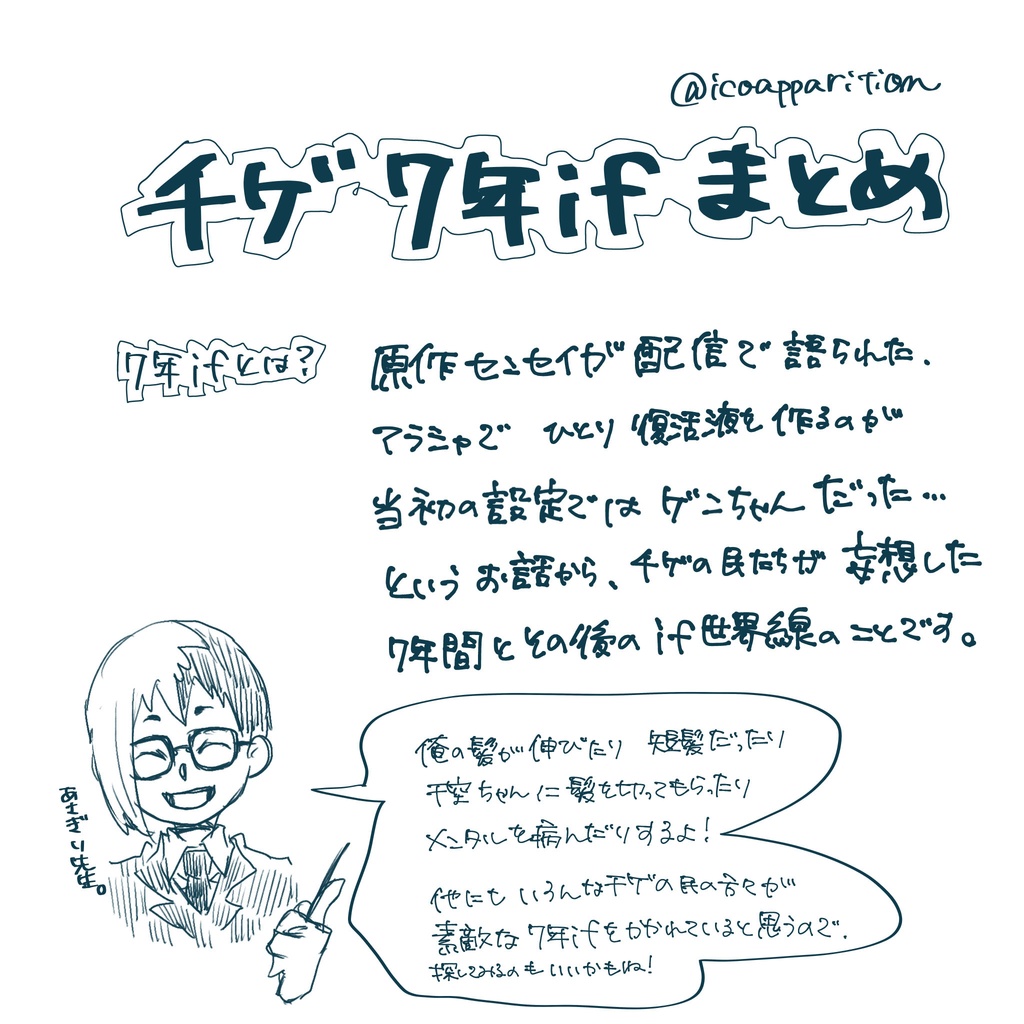 @icoapparition
チゲ7年ifまとめ
7年ifとは?
原作センセイが配信で語られた、
アラシャで ひとり復活液を作るのが
当初の設定では ゲンちゃんだった…
という お話から、チゲの民たちが 妄想した
7年間とその後のif世界線のことです。
俺の髪が伸びたり 短髪だったり
千空ちゃんに髪を切ってもらったり
メンタルを病んだりするよ!
他にも いろんなチゲの民の方々が
素敵な 7年ifをかかれていると思うので、
探してみるのもいいかもね!
あさぎり先生。